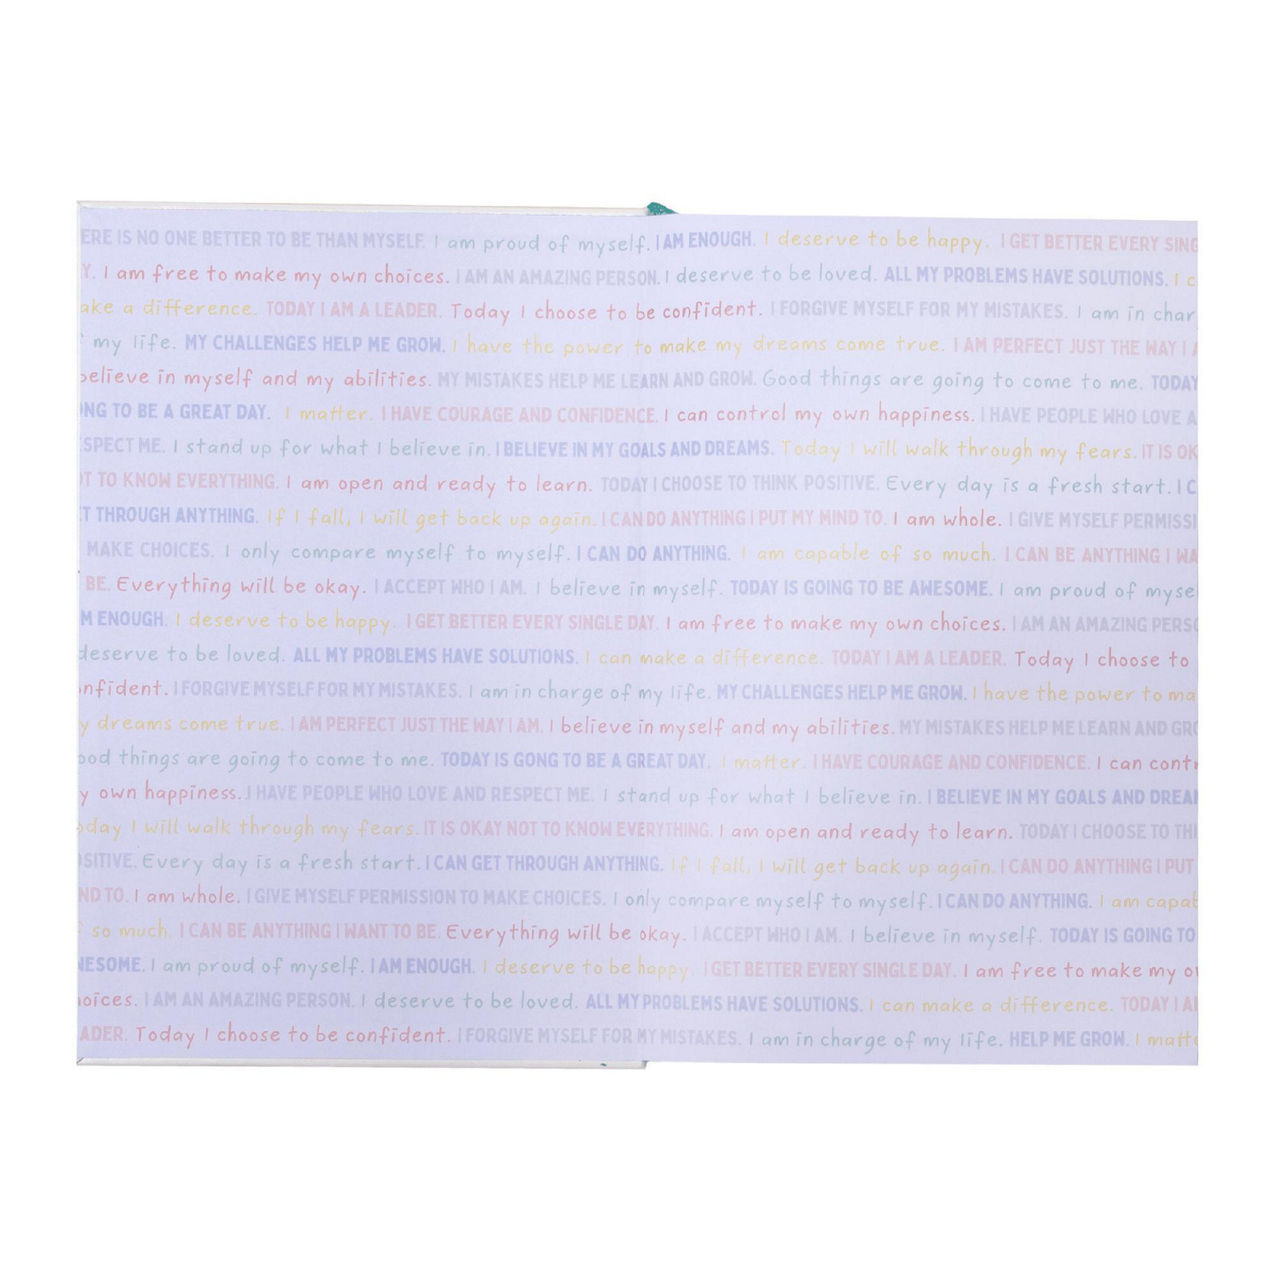 ERE IS NO ONE BETTER TO BE THAN MYSELF. I am proud of myself. I AM ENOUGH. I deserve to be happy. I GET BETTER EVERY SING
Y. I am free to make my own choices. I AM AN AMAZING PERSON. I deserve to be loved. ALL MY PROBLEMS HAVE SOLUTIONS. I c
ake a difference. TODAY I AM A LEADER. Today I choose to be confident. I FORGIVE MYSELF FOR MY MISTAKES. I am in char
f my life. MY CHALLENGES HELP ME GROW. I have the power to make my dreams come true. I AM PERFECT JUST THE WAY I A
believe in myself and my abilities. MY MISTAKES HELP ME LEARN AND GROW. Good things are going to come to me. TODAY
ONG TO BE A GREAT DAY. I matter. I HAVE COURAGE AND CONFIDENCE. I can control my own happiness. I HAVE PEOPLE WHO LOVE A
SPECT ME. I stand up for what I believe in. I BELIEVE IN MY GOALS AND DREAMS. Today I will walk through my fears. IT IS OK
OT TO KNOW EVERYTHING. I am open and ready to learn. TODAY I CHOOSE TO THINK POSITIVE. Every day is a fresh start. I C
ET THROUGH ANYTHING. If I fall, I will get back up again. I CAN DO ANYTHING I PUT MY MIND TO. I am whole. I GIVE MYSELF PERMISSI
MAKE CHOICES. I only compare myself to myself. I CAN DO ANYTHING. I am capable of so much. I CAN BE ANYTHING I WA
BE. Everything will be okay. I ACCEPT WHO I AM. I believe in myself. TODAY IS GOING TO BE AWESOME. I am proud of myse
M ENOUGH. I deserve to be happy. I GET BETTER EVERY SINGLE DAY. I am free to make my own choices. I AM AN AMAZING PERSO
deserve to be loved. ALL MY PROBLEMS HAVE SOLUTIONS. I can make a difference. TODAY I AM A LEADER. Today I choose to
nfident. I FORGIVE MYSELF FOR MY MISTAKES. I am in charge of my life. MY CHALLENGES HELP ME GROW. I have the power to ma
y dreams come true. I AM PERFECT JUST THE WAY I AM. I believe in myself and my abilities. MY MISTAKES HELP ME LEARN AND GRO
ood things are going to come to me. TODAY IS GONG TO BE A GREAT DAY. I matter. I HAVE COURAGE AND CONFIDENCE. I can contr
y own happiness. I HAVE PEOPLE WHO LOVE AND RESPECT ME. I stand up for what I believe in. I BELIEVE IN MY GOALS AND DREAM
oday I will walk through my fears. IT IS OKAY NOT TO KNOW EVERYTHING. I am open and ready to learn. TODAY I CHOOSE TO THI
OSITIVE. Every day is a fresh start. I CAN GET THROUGH ANYTHING. If I fall, I will get back up again. I CAN DO ANYTHING I PUT
ND TO. I am whole. I GIVE MYSELF PERMISSION TO MAKE CHOICES. I only compare myself to myself. I CAN DO ANYTHING. I am capab
f so much. I CAN BE ANYTHING I WANT TO BE. Everything will be okay. I ACCEPT WHO I AM. I believe in myself. TODAY IS GOING TO
WESOME. I am proud of myself. I AM ENOUGH. I deserve to be happy. I GET BETTER EVERY SINGLE DAY. I am free to make my ow
hoices. I AM AN AMAZING PERSON. I deserve to be loved. ALL MY PROBLEMS HAVE SOLUTIONS. I can make a difference. TODAY I A
ADER. Today I choose to be confident. I FORGIVE MYSELF FOR MY MISTAKES. I am in charge of my life. HELP ME GROW. I matte